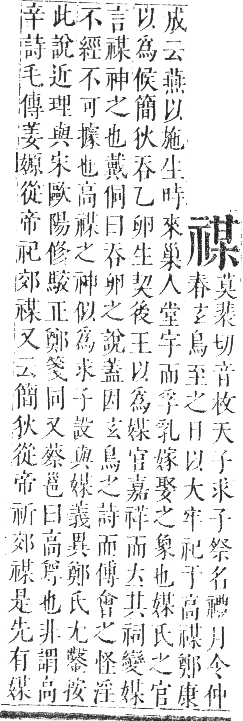 禖
莫裴切音枚天子求子祭名禮月令仲
春玄鳥至之日以大牢祀于高禖鄭康
成云燕以施生時來巢人堂宇而孚乳嫁娶之象也媒氏之官
以為候簡狄吞乙卵生契後王以為媒官嘉祥而立其祠變媒
言禖神之也戴侗曰吞卵之說蓋因玄鳥之詩而傅會之怪淫
不經不可據也高禖之神似為求子設與媒義異鄭氏尤鑿按
此說近理與宋歐陽修駁正鄭箋同又蔡邕曰高尊也非謂高
辛詩毛傳姜嫄從帝祀郊禖又云簡狄從帝祈郊禖是先有媒